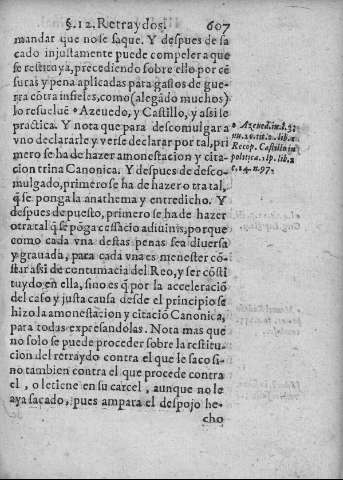 §.12. Retraydos. 607
mandar que no le saque. Y despues de sa
cado injustamente puede compeler a que
se restituya, precediendo sobre ello por cē
suras y pena aplicadas para gastos de gue
rra cōtra infieles, como (alegādo muchos)
lo resuelue * Azeuedo, y Castillo, y assi le
practica. Y nota que para descomulgar a
vno declararle y verse declarar por tal, pri
mero se ha de hazer amonestacion y cita
cion trina Canonica. Y despues de desco-
mulgado, primero se ha de hazer otra tal,
q̄ se ponga la anathema y entredicho. Y
despues de puesto, primero se ha de hazer
otra tal q̄ se pōga cessacio adiuinis, porque
como cada vna destas penas sea diuersa
y grauada, para cada vna es menester cō-
star assi de contumacia del Reo, y ser cōsti
tuydo en ella, sino es q̄ por la aceleraciō
del caso y justa causa desde el principio se
hizo la amonestacion y citaciō Canonica,
para todas expresandolas. Nota mas que
no solo se puede proceder sobre la restitu
cion del retraydo contra el que le saco si-
no tambien contra el que procede contra
el, o le tiene en su carcel, aunque no le
aya sacado, pues ampara el despojo he-
cho
* Azeued. in. l. 3:
nu. 10. tit. 2. lib. 1
Recop. Castillo in
politica. 1 p. lib. 2
c. 14. n. 97.